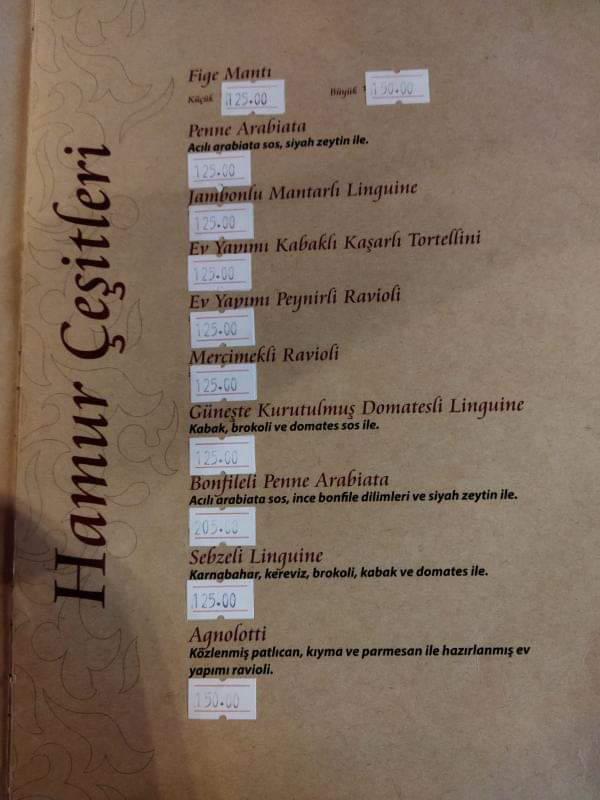 Hamur Çeşitleri
Fige Mantı
Küçük 125.00 Büyük 150.00
Penne Arabiata
Acılı arabiata sos, siyah zeytin ile.
125.00
Jambonlu Mantarlı Linguine
125.00
Ev Yapımı Kabaklı Kaşarlı Tortellini
125.00
Ev Yapımı Peynirli Ravioli
125.00
Merçimekli Ravioli
125.00
Güneşte Kurutulmuş Domatesli Linguine
Kabak, brokoli ve domates sos ile.
125.00
Bonfileli Penne Arabiata
Acılı arabiata sos, ince bonfile dilimleri ve siyah zeytin ile.
205.00
Sebzeli Linguine
Karnabahar, kereviz, brokoli, kabak ve domates ile.
125.00
Agnolotti
Közlenmiş patlıcan, kıyma ve parmesan ile hazırlanmış ev
yapımı ravioli.
150.00